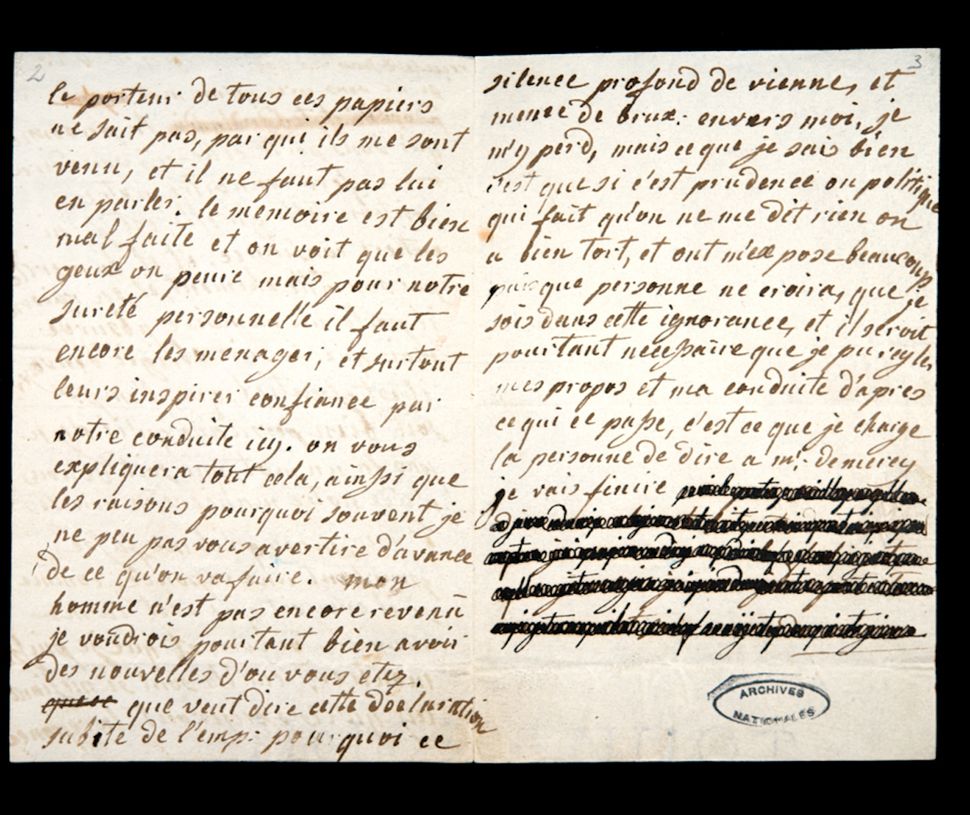 2
le porteur de tous ces papiers
ne sait pas, par qui ils me sont
venu, et il ne faut pas lui
en parler. le memoire est bien
mal faite et on voit que les
geux on peure mais pour notre
sureté personnelle il faut
encore les menager, et surtout
leurs inspirer confiance par
notre conduite icy. on vous
expliquera tout cela, ainsi que
les raisons pourquoi souvent je
ne peu pas vous avertire d'avance
de ce qu'on va faire. mon
homme n'est pas encore revenu
je voudrois pourtant bien avoir
des nouvelles d'ou vous etez.
que veut dire cette declaration
subite de l'emp: pourquoi ce
3
silence profond de vienne, et
meme de brux: envers moi, je
m'y perd, mais ce que je sais bien
c'est que si c'est prudence ou politique
qui fait qu'on ne me dit rien on
a bien tort, et ont m'expose beaucoup
puisque personne ne croira, que je
sois dans cette ignorance, et il seroit
pourtant necessaire que je pu regler
mes propos et ma conduite d'apres
ce qui ce passe, c'est ce que je charge
la personne de dire a mr. de mercy
je vais finire
ARCHIVES
NATIONALES